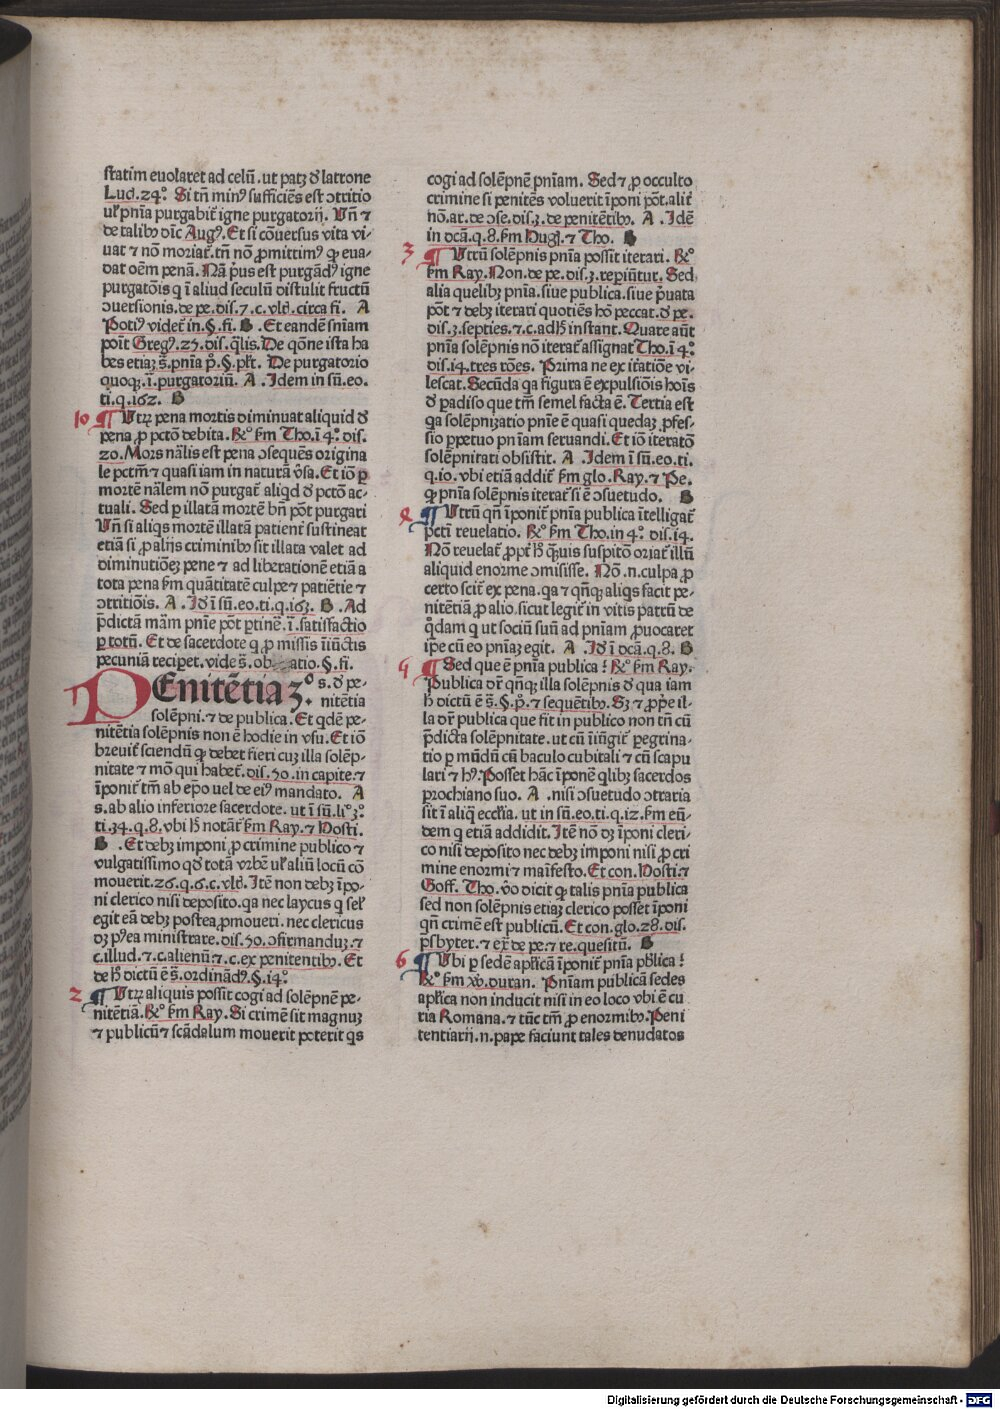 statim euolaret ad celū. ut patꝫ ď latrone
Luc̄. 24°. Si tn̄ minꝰ sufficiēs est ↄtritio
ul̓ pn̄ia purgabit̄ igne purgatorij. Vn̄ ⁊
de talibꝰ dic̄ Augꝰ. Et si cōuersus vita vi-
uat ⁊ nō moriat̄. tn̄ nō ꝓmittimꝰ ꝙ eua-
dat oēm penā. Nā pꝰus est purgādꝰ igne
purgatōis q ī aliud seculū distulit fructū
ↄuersionis. de pe. dis. 7. c. vlꝉ. circa fi. A
Potiꝰ videt̄ in. §. fi. B. Et eandē sn̄iam
poīt Gregꝰ. 25. dis. q̄lis. De qōne ista ha
bes etiaꝫ s̄. pn̄ia p°. §. pꝉt. De purgatorio
quoqꝫ. ī. purgatoriū. A. Idem in sū. eo.
ti. q. 162. B
10 ¶ Vtrꝝ pena mortis diminuat aliquid ď
pena ꝓ pctō debita. Rꝰ° ẜm Tho. ī 4°. dis.
20. Mors nālis est pena ↄsequēs origina
le pctm̄ ⁊ quasi iam in naturā v̓sa. Et iō ꝑ
mortē nālem nō purgat̄ aliqd ď pctō ac-
tuali. Sed ꝑ illatā mortē bn̄ pōt purgari
Vn̄ si aliqs mortē illatā patient̄ sustineat
etiā si ꝓ alijs criminibꝰ sit illata valet ad
diminutiōeꝫ pene ⁊ ad liberationē etiā a
tota pena ẜm quātitatē culpe ⁊ patiētie ⁊
ↄtritiōis. A. Iď ī sū. eo. ti. q. 163. B. Ad
p̄dictā mām pn̄ie pōt ꝑtinē. ī. satisfactio
ꝑ totū. Et de sacerdote q ꝓ missis īiūctis
pecuniā recipet. vide s̄. ob atio. §. fi.
PEnitētia 3°. s. ď pe-
nitētia
solēpni. ⁊ de publica. Et qdē pe-
nitētia solēpnis non ē hodie in vsu. Et iō
breuit̄ sciendū ꝙ debet fieri cuꝫ illa solēp-
nitate ⁊ mō qui habet̄. dis. 50. in capite. ⁊
īponit̄ tm̄ ab ep̄o uel de eiꝰ mandato. A
s. ab alio inferiore sacerdote. ut ī sū. li°. 3°.
ti. 34. q. 8. vbi h̄ notāt̄ ẜm Ray. ⁊ Hosti.
B. Et debꝫ imponi ꝓ crimine publico ⁊
vulgatissimo qď totā vrbē ul̓ aliū locū cō
mouerit. 26. q. 6. c. vlꝉ. Itē non debꝫ īpo-
ni clerico nisi deposito. qa nec laycus q sel̓
egit eā debꝫ postea ꝓmoueri. nec clericus
dꝫ p̓ea ministrare. dis. 50. ↄfirmanduꝫ. ⁊
c. illud. ⁊ c. alienū. ⁊ c. ex penitentibꝰ. Et
de h̄ dictū ē s̄. ordinādꝰ. §. 14°.
2 ¶ Vtrꝝ aliquis possit cogi ad solēpnē pe-
nitētiā. Rꝰ° ẜm Ray. Si crimē sit magnuꝫ
⁊ publicū ⁊ scādalum mouerit poterit qs
cogi ad solēpnē pn̄iam. Sed ⁊ ꝓ occulto
crimine si penitēs voluerit īponi pōt. alit̄
nō. ar. de ↄse. dis. 3. de penitētibꝰ. A. Idē
in dcā. q. 8. ẜm Hugꝰ. ⁊ Tho. B
3 ¶ Vtrū solēpnis pn̄ia possit iterari. Rꝰ°
ẜm Ray. Non. de pe. dis. 3. repiūtur. Sed
alia quelibꝫ pn̄ia. siue publica. siue p̄uata
pōt ⁊ debꝫ iterari quotiēs hō peccat. ď pe.
dis. 3. septies. ⁊ c. adh̄ instant. Quare aūt
pn̄ia solēpnis nō iterat̄ assignat Tho. ī 4°.
dis. 14. tres rōes. Prima ne ex itatiōe vi-
lescat. Secūda qa figura ē expulsiōis hoīs
ď ꝑadiso que tm̄ semel facta ē. Tertia est
qa solēpnizatio pn̄ie ē quasi quedaꝫ ꝓfes-
sio ꝑpetuo pn̄iam seruandi. Et iō iteratō
solēpnitati obsistit. A. Idem ī sū. eo. ti.
q. 10. vbi etiā addit̄ ẜm glo. Ray. ⁊ Pe.
ꝙ pn̄ia solēpnis iterat̄ si ē ↄsuetudo. B
4 ¶ Vtrū qn̄ īponit̄ pn̄ia publica ītelligat̄
pcti reuelatio. Rꝰ° ẜm Tho. in 4°. dis. 14.
Nō reuelat̄ ꝓpt̓ h̄ q̄uis suspitō oriat̄ illū
aliquid enorme ↄmisisse. Nō. n. culpa ꝓ
certo scit̄ ex pena. qa ⁊ qn̄qꝫ aliqs facit pe-
nitētiā ꝓ alio. sicut legit̄ in vitis patrū de
q̇dam q ut sociū suū ad pn̄iam ꝓuocaret
ip̄e cū eo pn̄iaꝫ egit. A. Iď ī dcā. q. 8. B
5 ¶ Sed que ē pn̄ia publica? Rꝰ° ẜm Ray.
Publica dr̄ qn̄qꝫ illa solēpnis ď qua iam
h̄ dictū ē s̄. §. p°. ⁊ sequētibꝰ. Sꝫ ⁊ ꝓp̓e il-
la dr̄ publica que fit in publico non tn̄ cū
p̄dicta solēpnitate. ut cū iniūgit̄ ꝑegrina-
tio ꝑ mūdū cū baculo cubitali ⁊ cū scapu
lari ⁊ hꝰ. Posset hāc īponē qlibꝫ sacerdos
prochiano suo. A. nisi ↄsuetudo ↄtraria
sit ī aliq̄ ecctīa. ut in sū. eo. ti. q. 12. ẜm eū-
dem q etiā addidit. Itē nō dꝫ īponi cleri-
co nisi deposito nec debꝫ imponi nisi ꝓ cri
mine enormi ⁊ maīfesto. Et con. Hosti. ⁊
Goff. Tho. v̊o dicit ꝙ talis pn̄ia publica
sed non solēpnis etiaꝫ clerico posset īponi
qn̄ crimē est publicū. Et con. glo. 28. dis.
p̄sbyter. ⁊ ex̄ de pe. ⁊ re. quesitū. B
6 ¶ Vbi ꝑ sedē apl̓icā īponit̄ pn̄ia pb̓lica?
Rꝰ° ẜm w. duran. Pn̄iam publicā sedes
apl̓ica non inducit nisi in eo loco vbi ē cu
ria Romana. ⁊ tūc tm̄ ꝓ enormibꝰ. Peni
tentiarij. n. pape faciunt tales denudatos
Digitalisierung gefördert durch die Deutsche Forschungsgemeinschaft - DFG